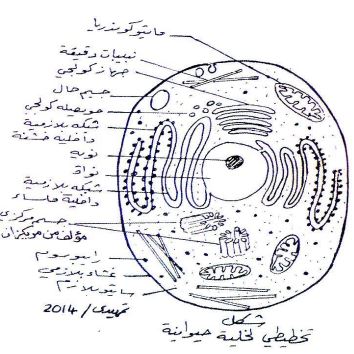 مايتوكوندريا
نبيبات دقيقة
جهاز كولجي
جسيم حال
حويصلة كولجي
شبكة بلازمية
داخلية خشنة
نوية
نواة
شبكة بلازمية
داخلية ملساء
جسيم مركزي
مؤلف من مريكزان
رايبوسوم
غشاء بلازمي
سايتوبلازم
تمهيدي / 2014
شكل
تخطيطي لخلية حيوانية